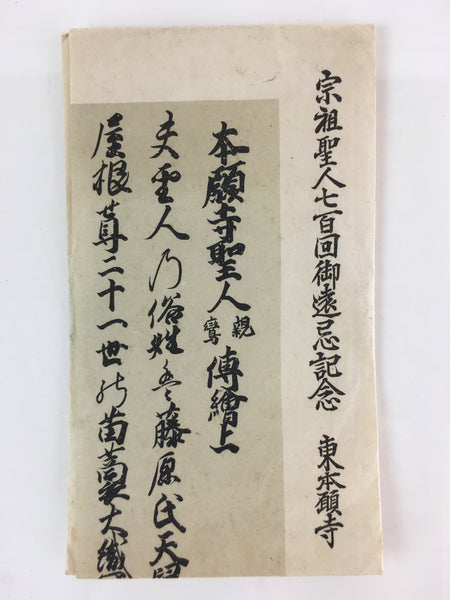 宗祖聖人七百回御遠忌記念　東本願寺
本願寺聖人親鸞傳繪上
夫聖人の俗姓は藤原氏天
屋根尊二十一世の苗裔大織